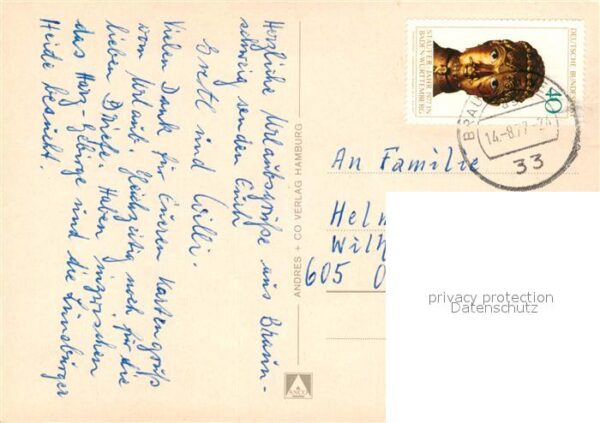 Herzliche Urlaubsgrüße aus Braun-
schweig senden Euch
Gretl und Willi.
Vielen Dank für Eueren Kartengruß
vom Urlaub. Gleichzeitig noch für die
lieben Briefe. Haben inzwischen
das Harz-Gebirge und die Lüneburger
Heide besucht.
ANDRES + CO VERLAG HAMBURG
ANDRES
DEUTSCHE BUNDESPOST
40
STAUFER JAHR 1977 IN
BADEN-WÜRTTEMBERG
BRAUNSCHWEIG
14.-8.77-24
33
An Familie
Helm
Wilh
605 O
privacy protection
Datenschutz